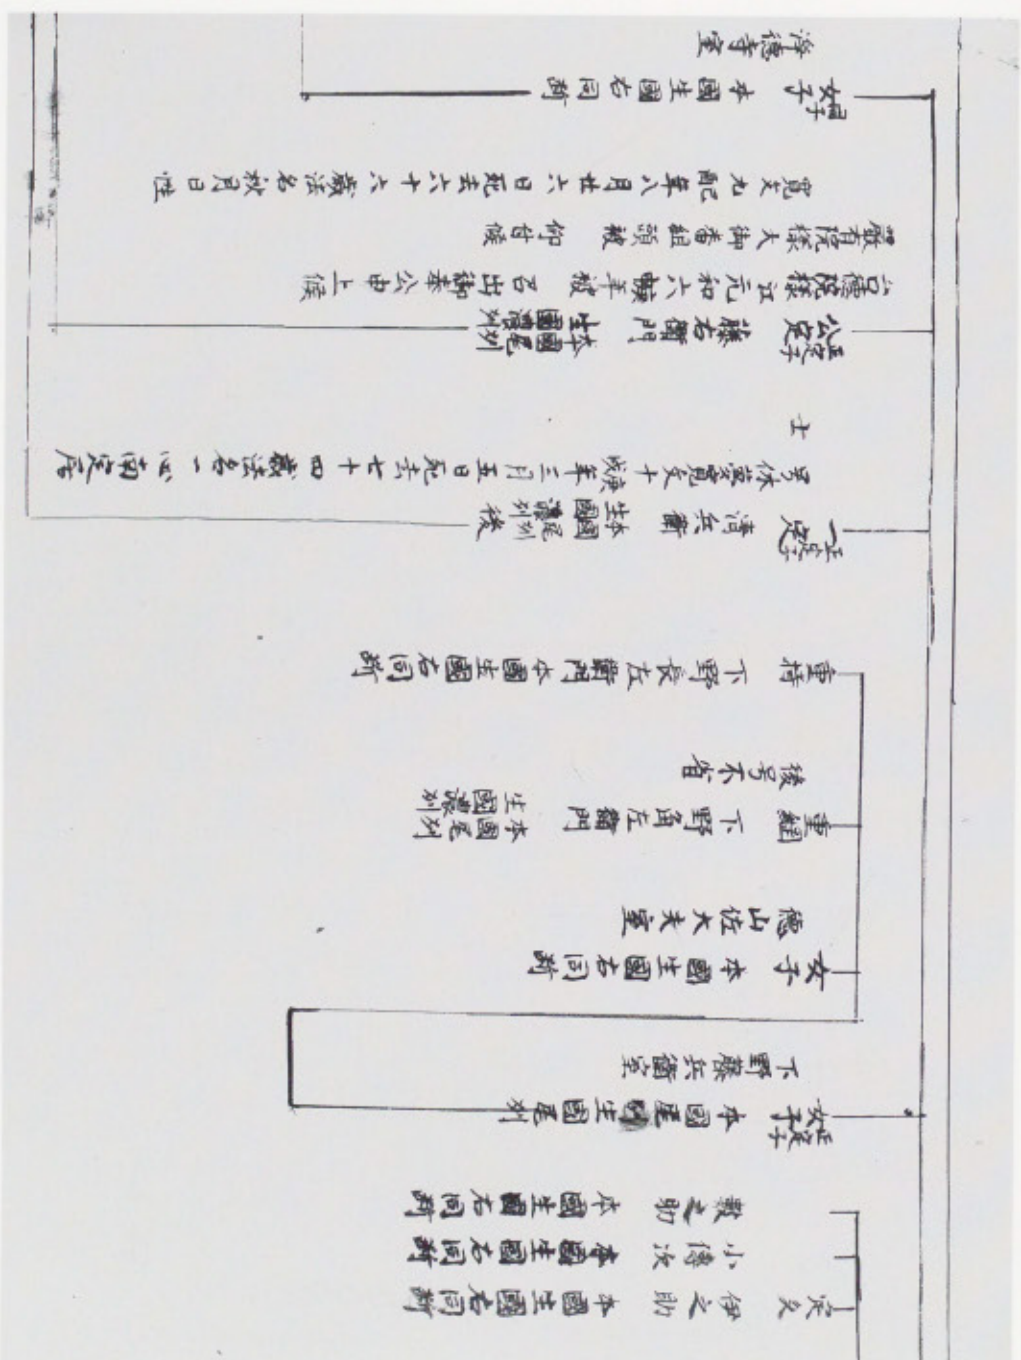 定久 伊之助 本國生國右同断
小傳次 本國生國右同断
数之助 本國生國右同断
正定子
女子 本國尾州生國尾州
下野藤兵衛室
女子 本國生國右同断
徳山佐大夫室
重綱 下野角左衛門 本國尾州
生國濃州
後号不省
重持 下野長左衛門 本國生國右同断
正定子
一定 清兵衛 本國尾州 後
生國濃州
号休翁寛文十庚戌年三月五日死去七十四歳法名一心向定居
士
正定子
公定 藤右衛門 本國尾州
生國濃州
台徳院様江元和六申年被 召出御奉公申上候
厳有院様大御番組頭被 仰付候
寛文九酉年八月廿六日死去六十六歳法名秋月日性
女子 本國生國右同断
浄徳寺室